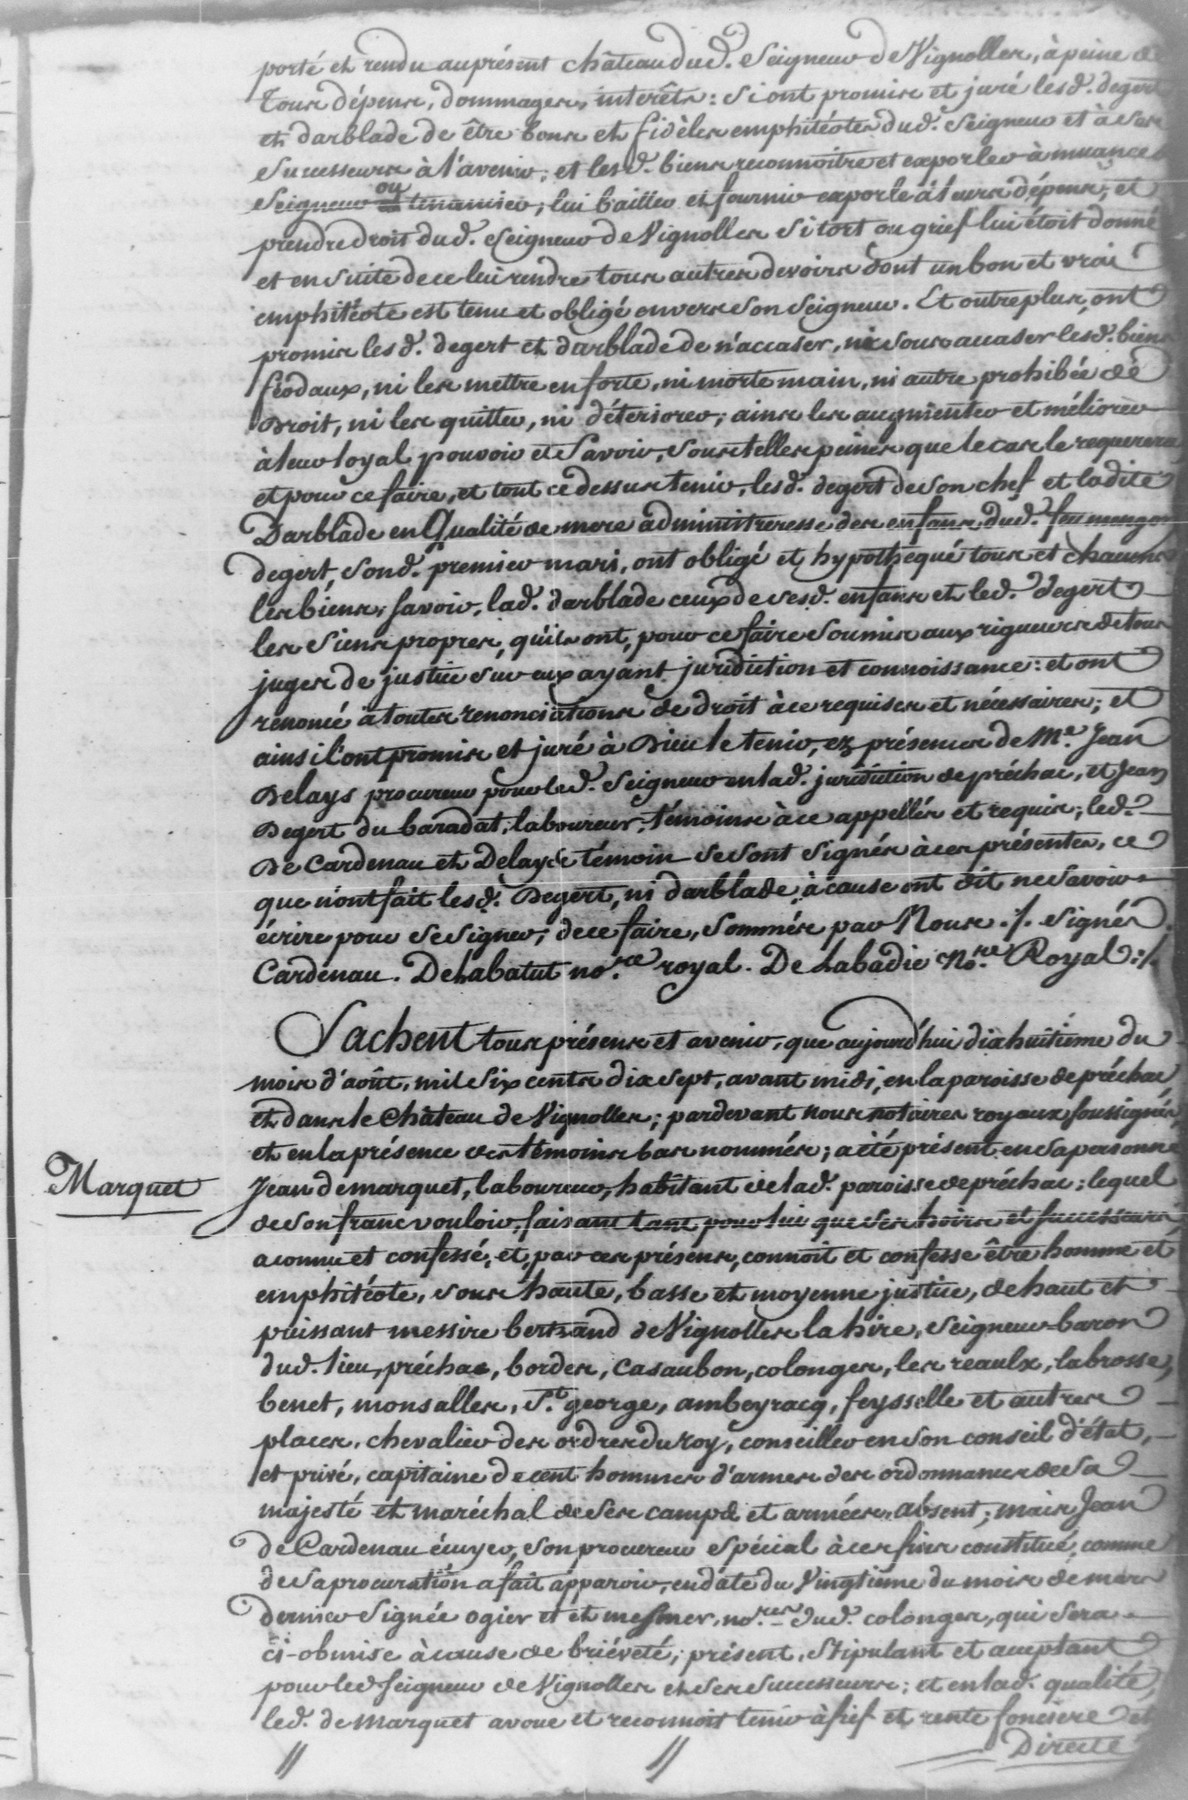 porté et rendu au présent château dud. Seigneur de Vignolles, à peine de
tous dépens, dommages, interêts : Si ont promis et juré lesd. degert
et darblade de être bons et fidèles emphitéotes dud. Seigneur et à Ses
Successeurs à l'avenir, et lesd. biens reconnoitre et exporler à muance
Seigneur ou tenancier, lui bailler et fournir exporle à leurs dépens, et
prendre droit dud. Seigneur de Vignolles Si tort ou grief lui étoit donné
et en suite de ce lui rendre tous autres devoirs dont un bon et vrai
emphitéote est tenu et obligé envers Son Seigneur. Et outreplus, ont
promis lesd. degert et darblade de n'accaser, ni Sous accaser lesd. biens
féodaux, ni les mettre en forte, ni morte main, ni autre prohibée de
Droit, ni les quitter, ni déteriorer; ains les augmenter et méliorer
à leur loyal pouvoir et Savoir, Sous telles peines que le cas le requerera
et pour ce faire, et tout ce dessus tenir, lesd. degert de Son chef et ladite
Darblade en Qualité de mere administreresse des enfans dud. feu
degert, Sond. premier mari, ont obligé et hypothequé tous et chacuns
les biens, Savoir, lad. darblade ceux de Sesd. enfans et led. degert
les Siens propres, qu'ils ont, pour ce faire Soumis aux rigueurs de tous
juges de justice Sur eux ayant juridiction et connoissance : et ont
renoncé à toutes renonciations de droit à ce requises et nécessaires; et
ainsi l'ont promis et juré à Dieu le tenir, ez présences de Me. Jean
Delays procureur pour led. Seigneur en lad. juridiction de préchac, et Jean
Degert du baradat, laboureur, témoins à ce appellés et requis; led.
De Cardenau et Delays témoin Se Sont Signés à ces présentes, ce
que n'ont fait lesd. Degert, ni darblade, à cause ont dit ne Savoir
écrire pour Se Signer; de ce faire, Sommés par Nous ./. Signés
Cardenau. DeLabatut nore. royal. De Labadie Nore. Royal :/.
Sachent tous présens et avenir, que aujourd'hui dixhuitième du
mois d'août, mil Six cents dix Sept, avant midi, en la paroisse de préchac
et dans le Château de Vignolles; pardevant nous notaires royaux soussignés,
et en la présence des témoins bas nommés; a été présent en Sa personne
Marquet
Jean de marquet, laboureur, habitant de lad. paroisse de préchac : lequel
de Son franc vouloir, faisant tant pour lui que Ses hoirs et Successeurs
a connu et confessé, et, par ces présens, connoit et confesse être homme et
emphitéote, Sous haute, basse et moyenne justice, de haut et
puissant messire bertrand de Vignolles la hire, Seigneur baron
dud. lieu, préchac, bordes, Casaubon, colonges, les reaulx, labrosse,
benet, monsalles, St. george, ambeyracq, feysselle et autres
places, chevalier des ordres du roy, conseiller en Son conseil d'état,
et privé, capitaine de cent hommes d'armes des ordonnances de Sa
majesté et maréchal de Ses camps et armées, absent; mais Jean
de Cardenau écuyer, Son procureur Spécial à ces fins constitué, comme
de Sa procuration a fait apparoir, en date du Vingtième du mois de mars
dernier Signée ogier et et mesmer, nores. dud. colonges, qui Sera
ci-obmise à cause de briéveté; présent, Stipulant et aceptant
pour led. Seigneur de Vignolles et Ses Successeurs; et en lad. qualité,
led. de Marquet avoue et reconnoit tenir à fief et rente fonciere et
Directe